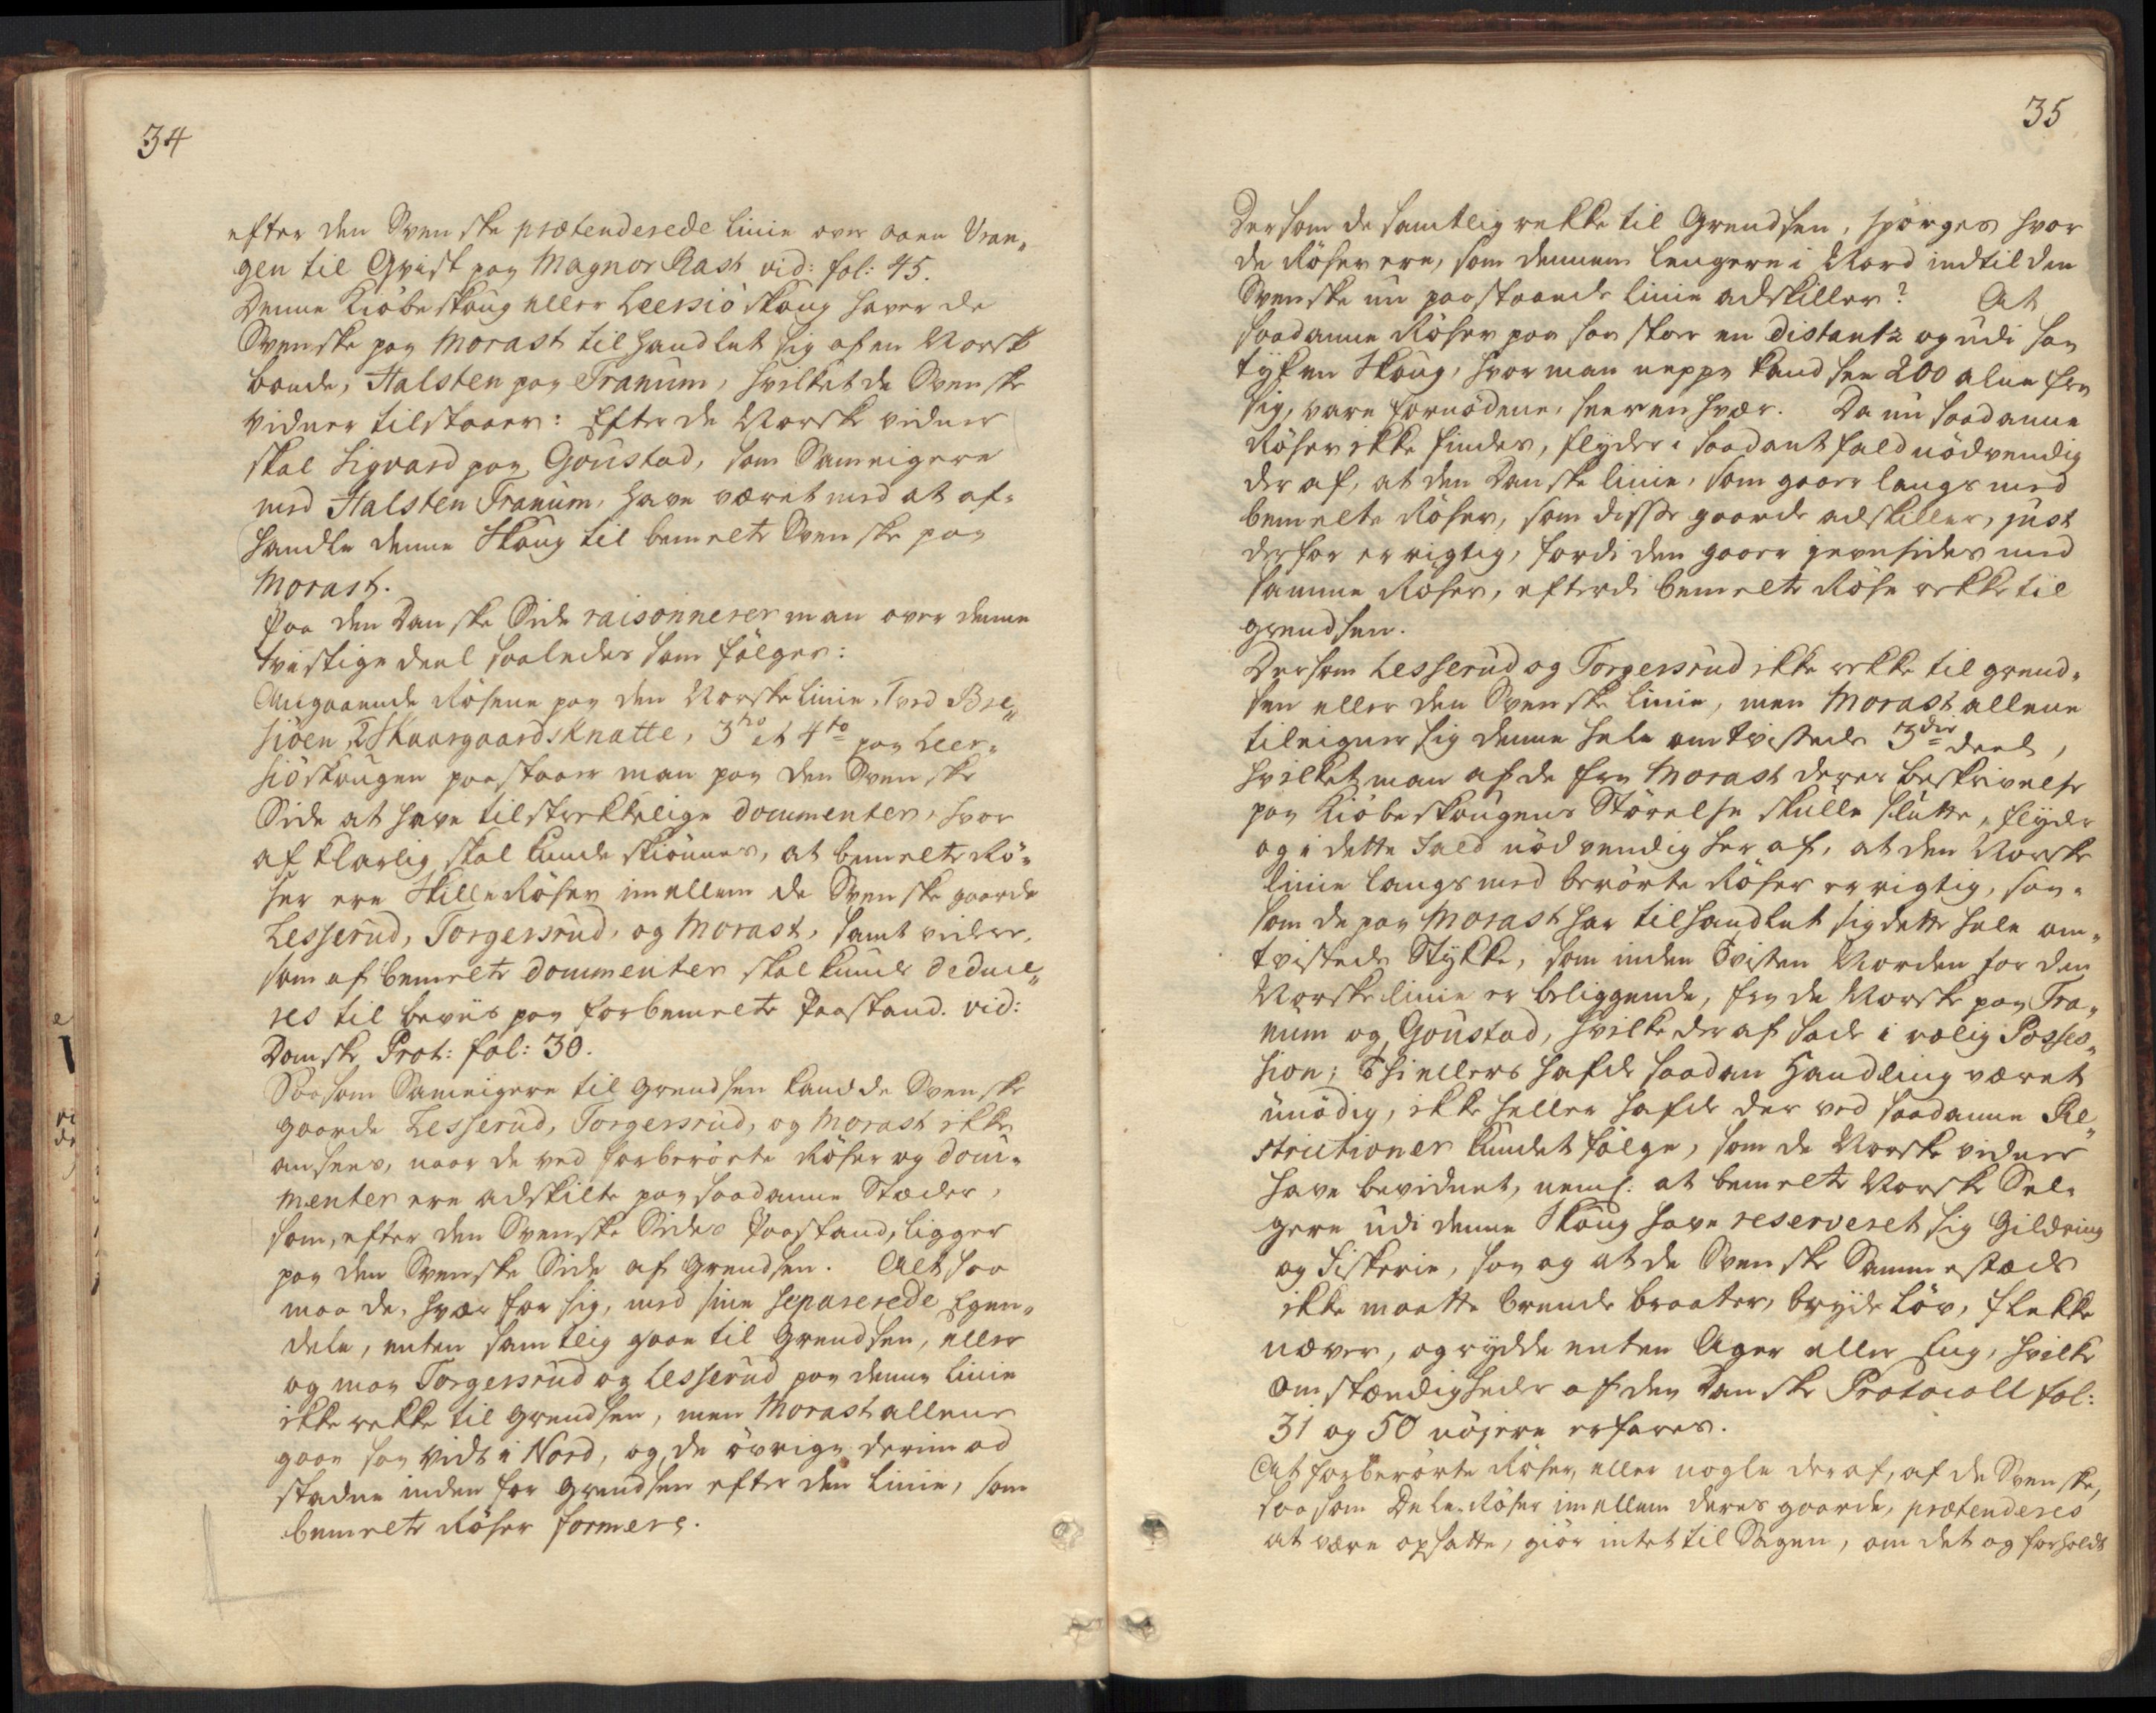 34
efter den Svenske prætenderede linie over aaen Vran„
gen til Qvist paa Magnor Rast vid: fol: 45.
Denne Kiöbeskoug eller Leersiö skoug haver de
Svenske paa Morast tilhandlet sig af en Norsk
bonde, Halsten paa Tranum, hvilket de Svenske
vidner tilstaaer: Efter de Norske vidner
skal Sigvard paa Goustad, som Sameigere
med Halsten Tranum, have været med at af-
handle denne Skoug til bemelte Svenske paa
Morast.
Paa den Danske Side raisonnerer man over denne
tvistige deel saaledes som fölger:
Angaaende Röserne paa den Norske linie, 1 ved Bre„
siöen, 2 Skaargaards Knatte, 3tio et 4to paa Leer-
siöskougen paastaaer man paa den Svenske
Side at have tilstrekkelige documenter, hvor
af klarlig skal kunde skiönnes, at bemelte Rö-
ser ere Skille Röser imellem de Svenske gaarde
Lesserud, Torgersrud, og Morast, samt videre,
som af bemelte documenter skal kunde deduce„
res til beviis paa forbemelte Paastand. vid:
Danske Prot: fol: 30.
Saasom Sameigere til grendsen kand de Svenske
gaarde Lesserud, Torgersrud, og Morast ikke
ansees, naar de ved forberörte Röser og docu-
menter ere adskilte paa saadanne Stæder,
som, efter den Svenske Sides Paastand, ligger
paa den Svenske Side af grendsen. Altsaa
maa de, hver for sig, med sine separerede Egen„
dele, enten samtlig gaae til Grendsen, eller
og maa Torgersrud og Lesserud paa denne linie
ikke rekke til grendsen, men Morast allene
gaae saa vidt i Nord, og de övrige derimod
stadne inden for grendsen efter den linie, som
bemelte Röser formere.
35
Dersom de samtlig rekke til Grendsen, spörges hvor
de Röser ere, som dennem lengere i Nord indtil den
Svenske nu paastaaende linie adskiller? At
saadanne Röser paa saa stor en distantz og udi saa
tyk en Skoug, hvor man neppe kand see 200 alne fra
sig, vare fornödene, seer en hver. Da nu saadanne
Röser ikke findes, flyder i saadant fald nödvendig
der af, at den Danske linie, som gaaer langs med
bemelte Röser, som disse gaarde adskiller, just
derfor er rigtig, fordi den gaaer jevnsides med
samme Röser, efterdi bemelte Röse rekke til
grendsen.
Dersom Lesserud og Torgersrud ikke rekke til grend-
sen eller den Svenske linie, men Morast allene
tileigner sig denne hele omtvistede 3die deel,
hvilket man af de fra Morast deres beskrivelse
paa Kiöbeskougens Störelse skulle slutte, flyder
og i dette Fald nödvendig her af, at den Norske
linie langs med berörte Röser er rigtig, saa-
som de paa Morast har tilhandlet sig dette hele om-
tvistede Stykke, som inden Tvisten Norden for den
Norske linie er beliggende, fra de Norske paa Tra„
num og Goustad, hvilke der af sade i rolig Posses„
sion; thi ellers hafde saadan Handling været
unödig, ikke heller hafde der ved saadanne Re„
strictioner kundet fölge, som de Norske vidner
have bevidnet, neml: at bemelte Norske Sel-
gere udi denne Skoug have reserveret sig Gildring
og Fiskerie, saa og at de Svenske Sammestæds
ikke maatte brende braater, bryde Löv, flekke
næver, og rydde enten Ager eller Eng, hvilke
omstændigheder af den Danske Protocoll fol:
31 og 50 nöjere erfares.
At forberörte Röser, eller nogle deraf, af de Svenske,
saasom Dele-Röser imellem deres gaarde, prætenderes
at være opsatte, giör intet til Sagen, om det og forholdt